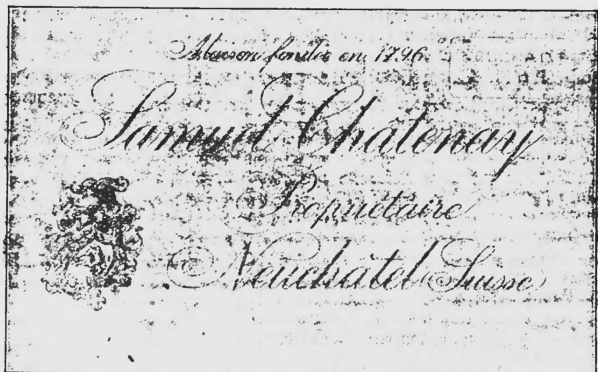 Maison fondée en 1796
Samuel Châtenay
Propriétaire
Neuchâtel (Suisse)